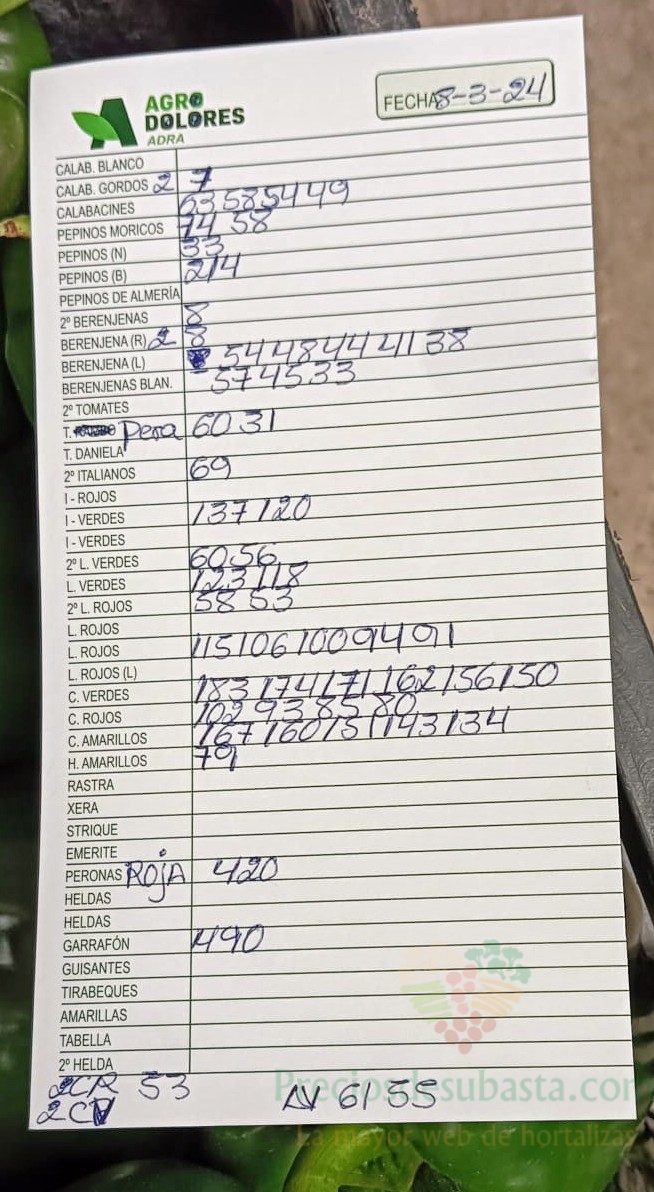 AGRO
DOLORES
ADRA
FECHA 8-3-24
CALAB. BLANCO
CALAB. GORDOS 2 7
CALABACINES 63 58 54 49
PEPINOS MORICOS 74 58
PEPINOS (N) 33
PEPINOS (B) 214
PEPINOS DE ALMERÍA
2º BERENJENAS 8
BERENJENA (R) 2 8
BERENJENA (L) 54 48 44 41 38
BERENJENAS BLAN. 57 45 33
2º TOMATES
T. Pera 60 31
T. DANIELA
2º ITALIANOS 69
I - ROJOS
I - VERDES 137 120
I - VERDES
2º L. VERDES 60 56
L. VERDES 123 118
2º L. ROJOS 58 53
L. ROJOS
L. ROJOS 115 106 100 94 91
L. ROJOS (L)
C. VERDES 183 174 171 162 156 150
C. ROJOS 102 93 85 80
C. AMARILLOS 167 160 151 143 134
H. AMARILLOS 79
RASTRA
XERA
STRIQUE
EMERITE
PERONAS ROjA 420
HELDAS
HELDAS
GARRAFÓN 490
GUISANTES
TIRABEQUES
AMARILLAS
TABELLA
2º HELDA
2CR 53
2CV N 61 55
Preciosdesubasta.com
La mayor web de hortalizas